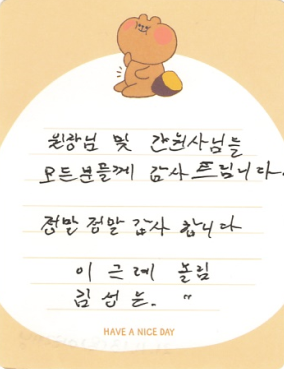 원장님 및 간회사님들
모든분들께 감사 뜨립니다.
정말 정말 감사 합니다
이 근례 올림
김성는. "
HAVE A NICE DAY